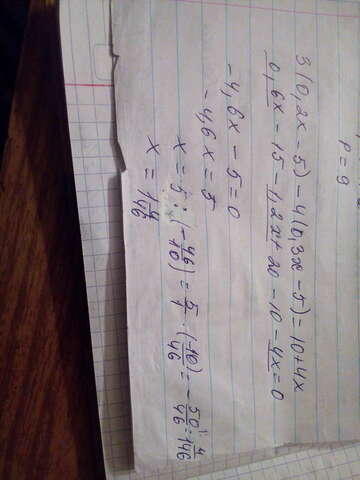 P = 9
3(0,2x - 5) - 4(0,3x - 5) = 10 + 4x
0,6x - 15 - 1,2x + 20 - 10 - 4x = 0
-4,6x - 5 = 0
-4,6x = 5
x = 5 : (-46/10) = 5/1 · (-10/46) = -50/46 = 1 4/46
x = 1 4/46